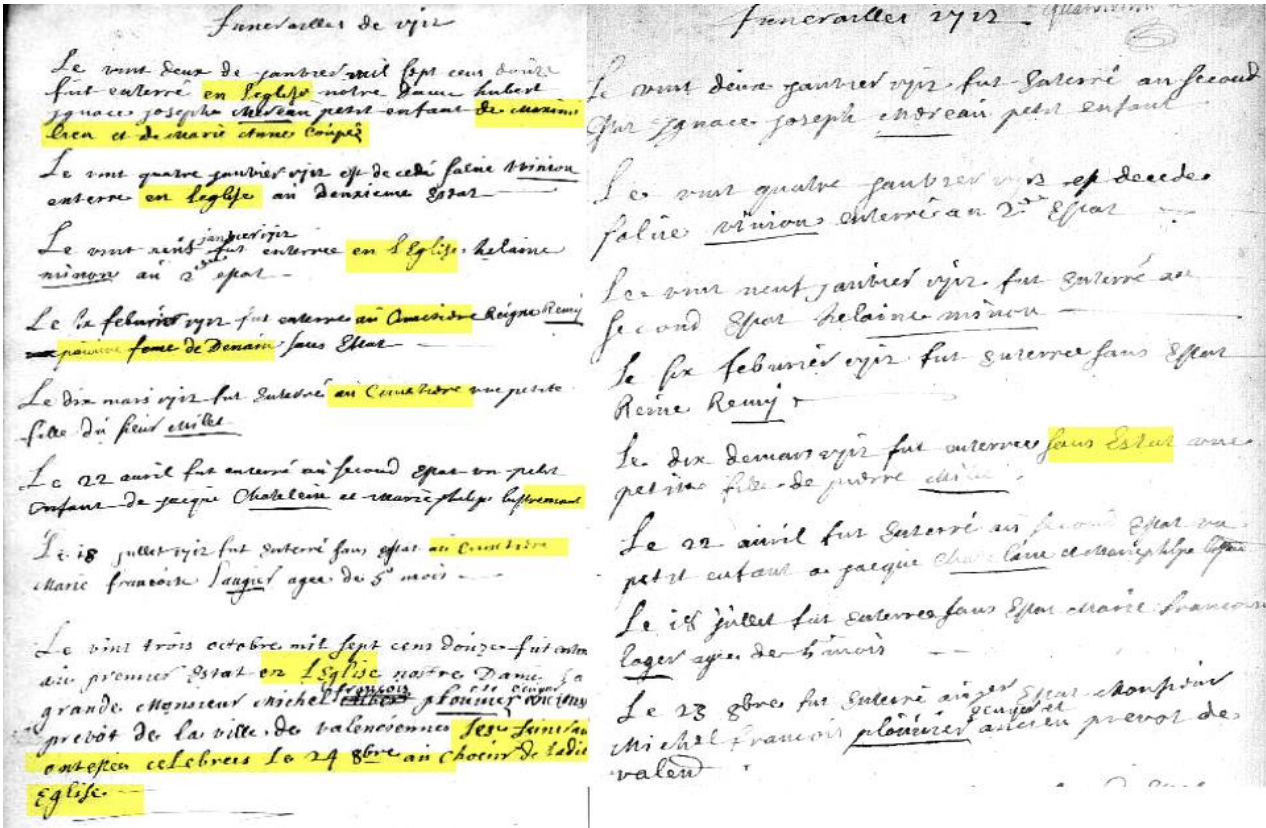 Funerailles de 1712
Le vint deux de janvier mil sept cens douze
fut enterré en Leglise notre Dame hubert
Ignace joseph Moreau petit enfant de Maximi
lien et de Marie Anne Coupez
Le vint quatre janvier 1712 est decedé Minion
enterre en Leglise au deuxieme Estat
janvier 1712
Le vint neuf fut enterree en L'Eglise helaine
minon au 2 estat
Le six febvrier 1712 fut enterree au Cimetidre Reigne Remy
pauvre feme de Denain sans Estat
Le dix mars 1712 fut Enterré au Cimetidre une petite
fille du sieur Milet
Le 22 avril fut enterré au second Estat un petit
enfant de jacque Chatelain et Marie philipe
Le 18 jullet 1712 fut Enterré sans estat au Cimetidre
Marie francoise Laugier agee de 5 mois
Le vint trois octobre mil sept cens douze fut enter
au premier Estat en L'Eglise nostre Dame La
grande Monsieur Michel françois plouvier
prevôt de la ville de valenciennes ses funerail
ont estez celebrees Le 24 8bre au choeur de ladit
Eglise
funerailles 1712
Le vint deux janvier 1712 fut Enterré au second
Estat Ignace joseph Moreau petit enfant
Le vint quatre janvier 1712 est decede
vinion enterré au 2 Estat
Le vint neuf janvier 1712 fut Enterré au
second Estat helaine minon
Le six febvrier 1712 fut enterree sans Estat
Reine Remy
Le dix de mars 1712 fut enterree sans Estat une
petitte fille de pierre Milé
Le 22 avril fut Enterré au second Estat un
petit enfant a jacque Chatelain et Marie philipe
Le 18 jullet fut enterree sans Estat Marie francoise
Loger agee de 5 mois
Le 23 8bre fut Enterré au 1er Estat Monsieur
ecuyer et
Michel francois plouvier ancien prevot de
valen